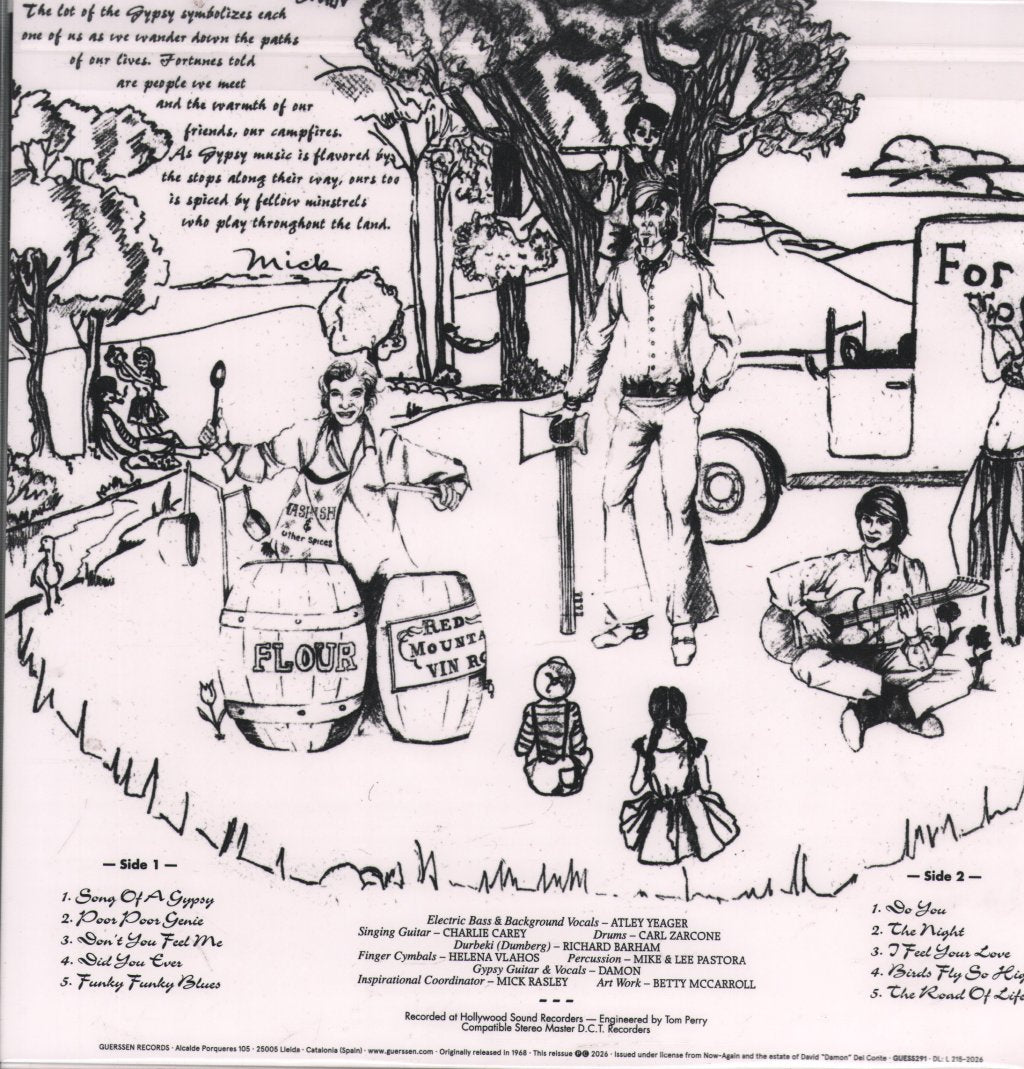 The lot of the Gypsy symbolizes each
one of us as we wander down the paths
of our lives. Fortunes told
are people we meet
and the warmth of our
friends, our campfires.
As Gypsy music is flavored by
the stops along their way, ours too
is spiced by fellow minstrels
who play throughout the land.
Mick
For
To
HASHISH
&
Other Spices
FLOUR
RED
MOUNTA
VIN RO
— Side 1 —
1. Song Of A Gypsy
2. Poor Poor Genie
3. Don't You Feel Me
4. Did You Ever
5. Funky Funky Blues
Electric Bass & Background Vocals – ATLEY YEAGER
Singing Guitar – CHARLIE CAREY Drums – CARL ZARCONE
Durbeki (Dumberg) – RICHARD BARHAM
Finger Cymbals – HELENA VLAHOS Percussion – MIKE & LEE PASTORA
Gypsy Guitar & Vocals – DAMON
Inspirational Coordinator – MICK RASLEY Art Work – BETTY MCCARROLL
– – –
Recorded at Hollywood Sound Recorders — Engineered by Tom Perry
Compatible Stereo Master D.C.T. Recorders
— Side 2 —
1. Do You
2. The Night
3. I Feel Your Love
4. Birds Fly So Hig
5. The Road Of Life
GUERSSEN RECORDS · Alcalde Porqueres 105 · 25005 Lleida · Catalonia (Spain) · www.guerssen.com · Originally released in 1968 · This reissue ℗© 2026 · Issued under license from Now-Again and the estate of David "Damon" Del Conte · GUESS291 · DL: L 215-2026